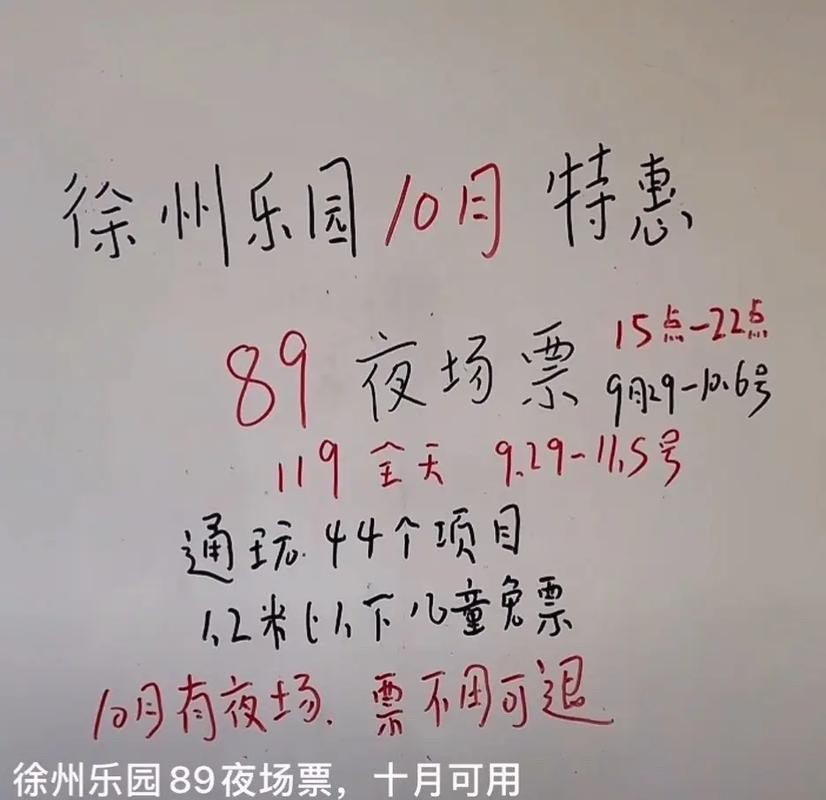 徐州乐园10月特惠
89夜场票 15点-22点
9月29-10.6号
119全天 9.29-11.5号
通玩.44个项目
1.2米以下儿童免票
10月有夜场.票不用可退
徐州乐园89夜场票，十月可用